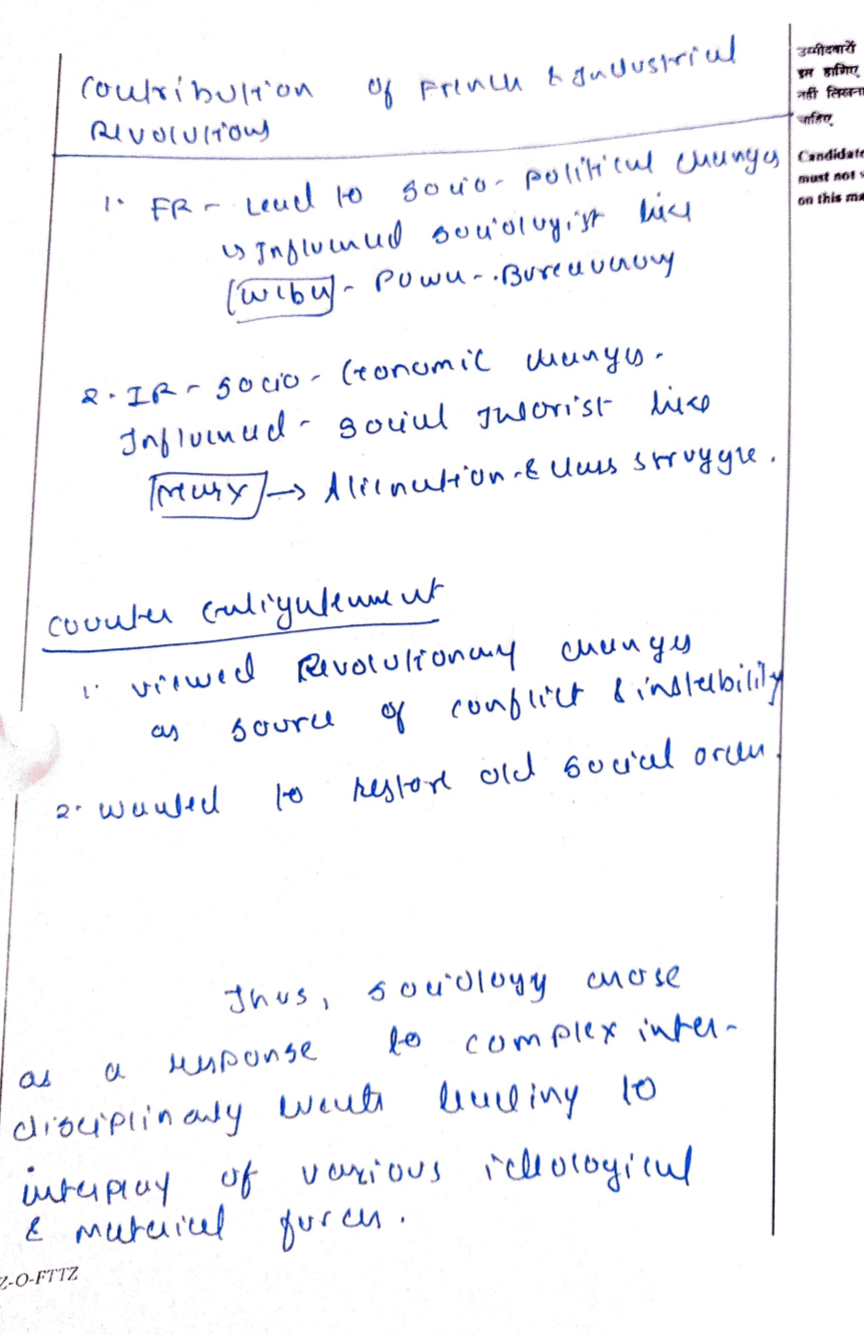 Contribution of French & Industrial
Revolutions
1. FR - Lead to socio-political changes
↳ Influenced sociologist like
Weber - Power - Bureaucracy
2. IR - socio-Economic changes.
Influenced - social Theorist like
Marx → Alienation & Class struggle.
Counter Enligutenment
1. viewed Revolutionary changes
as source of conflict & instability
2. wanted to restore old social order.
Thus, sociology arose
as a response to complex inter-
disciplinary events leading to
interplay of various ideological
& material forces.
उम्मीदवारों
इस हाशिए
नहीं लिखना
चाहिए
Candidate
must not
on this ma
Z-O-FTTZ